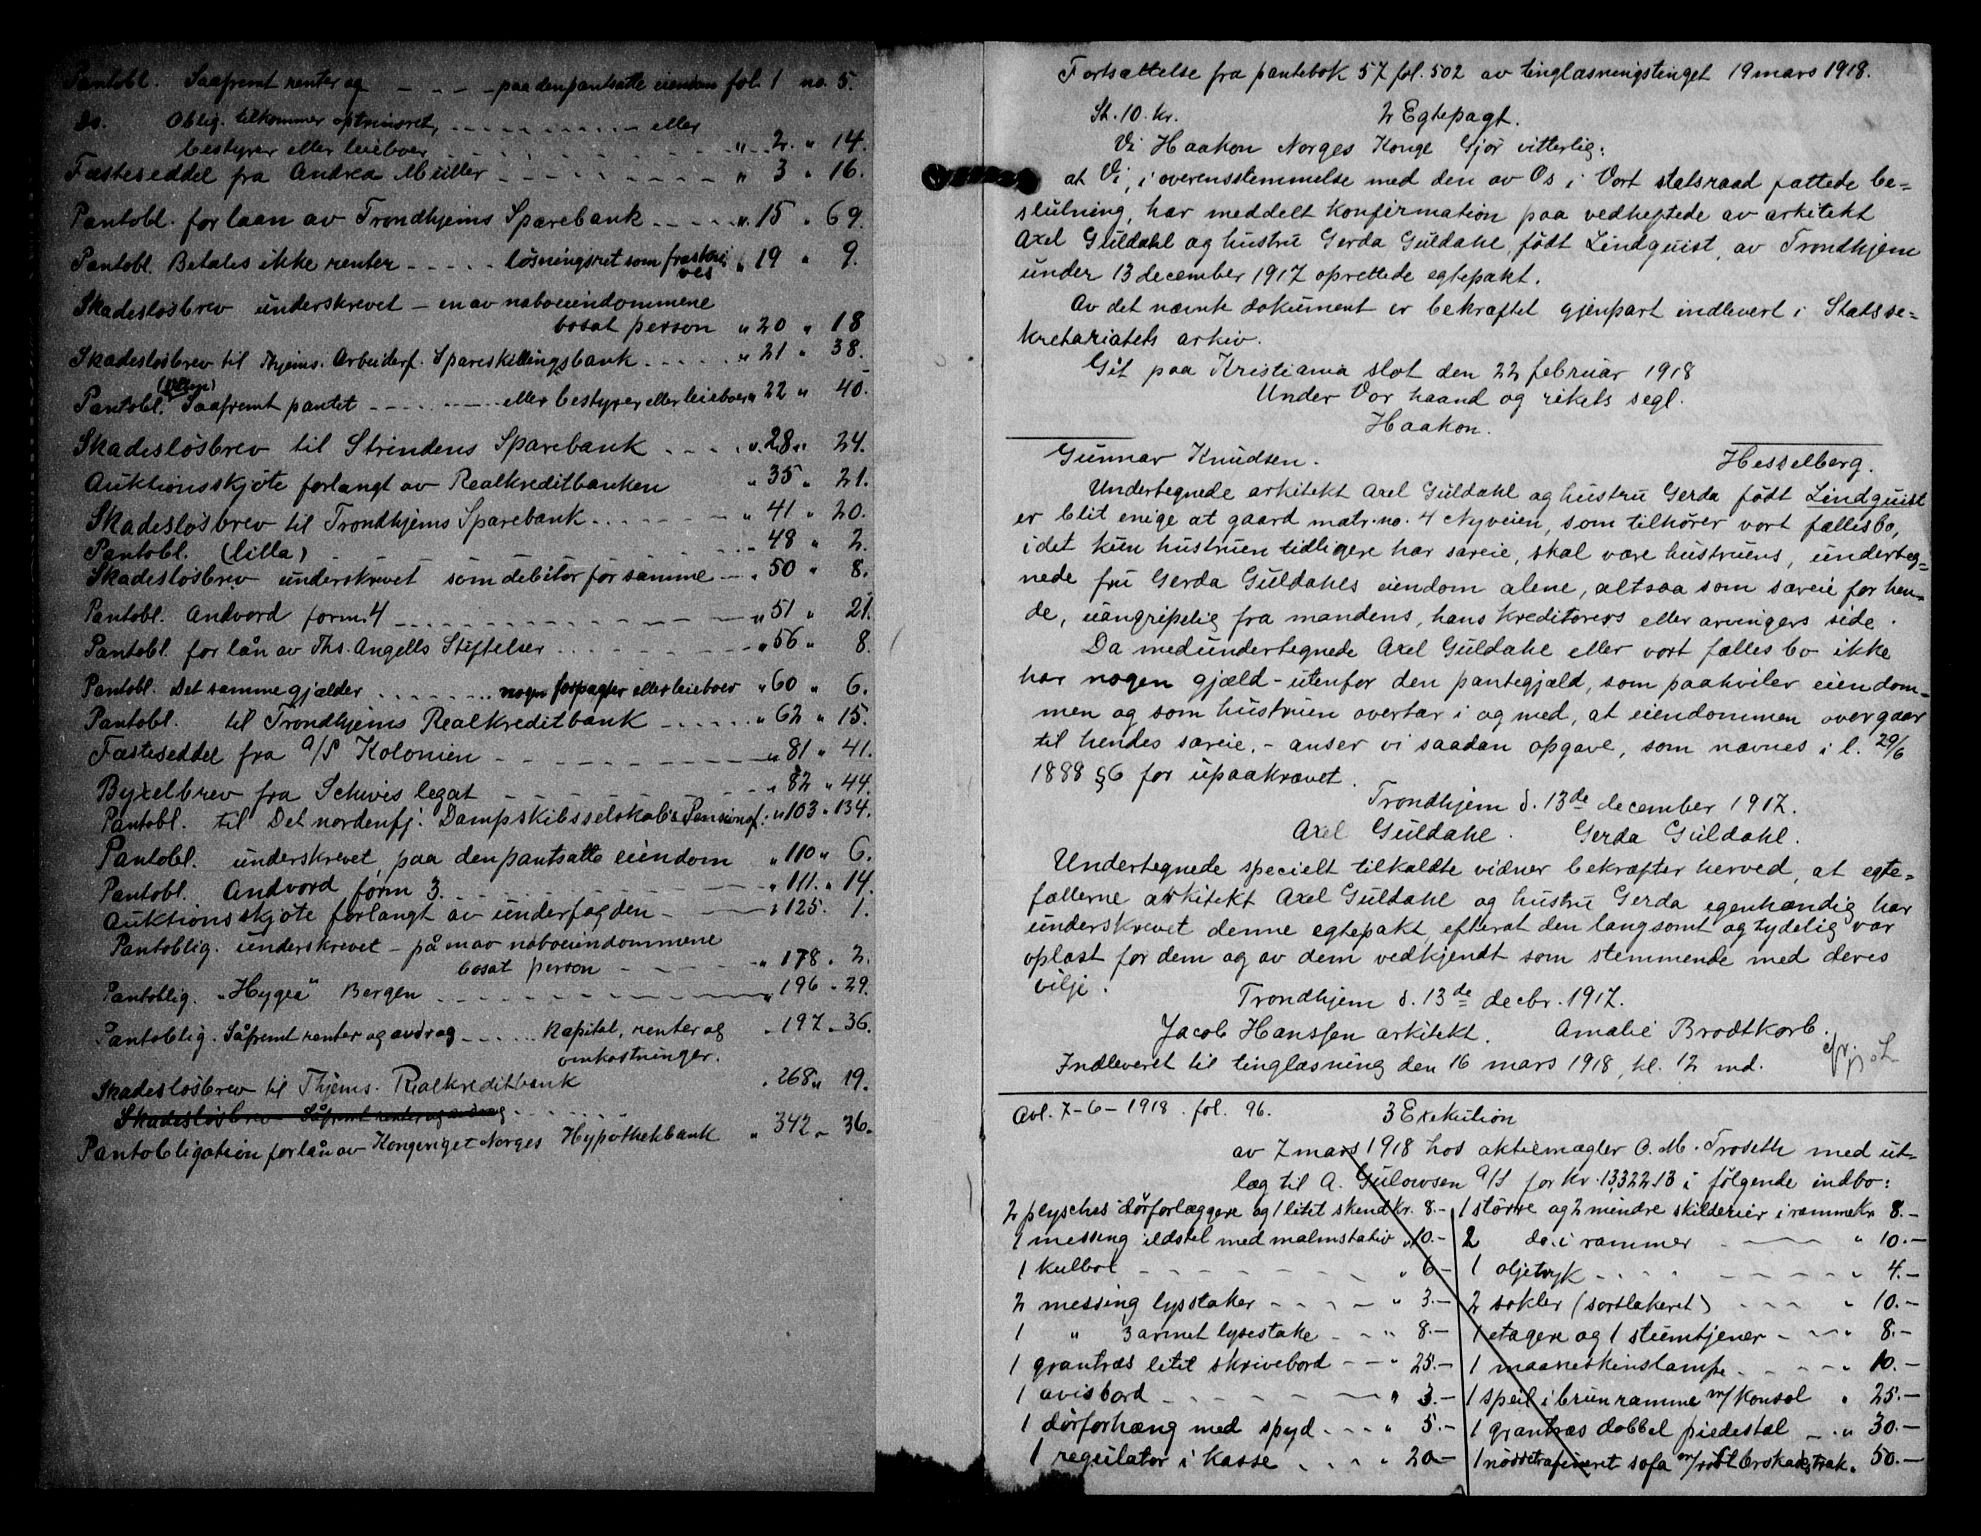 Pantobl. Saafremt renter og - - - - paa den pantsatte eiendom fol. 1 no. 5.
Do. Oblig. tilkommer optrinsret, - - - - - - eller
bestyrer eller leieboer - - - - - " 2. " 14.
Fæsteseddel fra Andrea Müller - - - - - - " 3 " 16.
Pantobl. for laan av Trondhjems Sparebank - - - - " 15 " 69.
Pantobl. Betales ikke renter - - - - - løsningsret som fraskri-
ves " 19 " 9.
Skadesløsbrev underskrevet - en av naboeiendommene
bosat person " 20 " 18
Skadesløsbrev til Thjems. Arbeiderf. Spareskillingsbank - - - - " 21 " 38.
Pantobl. (lilla) Saafremt pantet - - - - - - eller bestyrer eller leieboer " 22 " 40.
Skadesløsbrev til Strindens Sparebank . . . . " 28 " 24.
Auktionsskjøte forlangt av Realkreditbanken " 35 " 21.
Skadesløsbrev til Trondhjems Sparebank - - - - - " 41 " 20.
Pantobl. (lilla) - - - - - " 48 " 2.
Skadesløsbrev underskrevet som debitor for samme - - " 50 " 8.
Pantobl. Andvord form. 4 - - - - - - - " 51 " 21.
Pantobl. for lån av Ths. Angells Stiftelser - - - - - " 56 " 8.
Pantobl. Det samme gjælder . . . . . . . nogen forpagter eller leieboer " 60 " 6.
Pantobl. til Trondhjems Realkreditbank - - - - - " 62 " 15.
Fæsteseddel fra A/S Kolonien - - - - - - - " 81 " 41.
Byxelbrev fra Schives legat - - - - - - - " 82 " 44.
Pantobl. til Det nordenfj. Dampskibsselskabs Pensionsf. " 103 " 134.
Pantobl. underskrevet, paa den pantsatte eiendom " 110 " 6.
Pantobl. Andvord form 3. - - - - - - - " 111. " 14.
Auktionsskjøte forlangt av underfogden - - - " 125. 1.
Pantoblig. underskrevet - på en av naboeiendommene
bosat person - - - - - - " 178 " 2.
Pantoblig. "Hygea" Bergen - - - - - - - " 196 " 29.
Pantoblig. Såfremt renter og avdrag - - - - - kapital, renter og " 197 " 36.
omkostninger.
Skadesløsbrev til Thjems. Realkreditbank " 268 " 19.
Skadesløsbrev Såfremt renter og avdrag - - - - -
Pantobligation for lån av Kongeriget Norges Hypothekbank " 342 " 36.
Fortsættelse fra pantebok 57 fol. 502 av tinglæsningstinget 19 mars 1918.
St. 10. kr. 2 Egtepagt.
Vi Haakon Norges Konge Gjør vitterlig:
at Vi, i overensstemmelse med den av Os i Vort statsraad fattede be-
slutning, har meddelt konfirmation paa vedheftede av arkitekt
Axel Guldahl og hustru Gerda Guldahl, født Lindquist, av Trondhjem
under 13 december 1917 oprettede egtepakt.
Av det nævnte dokument er bekræftet gjenpart indlevert i Statsse-
kretariatets arkiv.
Git paa Kristiania slot den 22 februar 1918
Under Vor haand og rikets segl.
Haakon.
Gunnar Knudsen. Hesselberg.
Undertegnede arkitekt Axel Guldahl og hustru Gerda født Lindquist
er blit enige at gaard matr. no. 4 Nyveien, som tilhører vort fællesbo,
idet kun hustruen tidligere har særeie, skal være hustruens, underteg-
nede fru Gerda Guldahls eiendom alene, altsaa som særeie for hen-
de, uangripelig fra mandens, hans kreditorers eller arvingers side.
Da medundertegnede Axel Guldahl eller vort fællesbo ikke
har nogen gjæld - utenfor den pantegjæld, som paahviler eiendom-
men og som hustruen overtar i og med, at eiendommen overgaar
til hendes særeie. - anser vi saadan opgave, som nævnes i l. 29/6
1888 §6 for upaakrævet.
Trondhjem d. 13de december 1917.
Axel Guldahl. Gerda Guldahl.
Undertegnede specielt tilkaldte vidner bekræfter herved, at egte-
fællerne arkitekt Axel Guldahl og hustru Gerda egenhændig har
underskrevet denne egtepakt, efterat den langsomt og tydelig var
oplæst for dem og av dem vedkjendt som stemmende med deres
vilje.
Trondhjem d. 13de decbr. 1917.
Jacob Hanssen arkitekt. Amalie Brodtkorb.
Indleveret til tinglæsning den 16 mars 1918, kl. 12 md.
Avl. 7-6-1918. fol. 96. 3 Exekution
av 7 mars 1918 hos aktiemægler O. M. Troseth med ut-
læg til A. Gulowsen A/S for kr. 13322.13 i følgende indbo:
2 plysches dørforlæggere og 1 litet skind kr. 8.- 1 større og 2 mindre skilderier i ramme kr. 8.-
1 messing ildstel med malmstativ " 10.- 2 do. i rammer - - - " 10.-
1 kulbox - - - - - - " 6- 1 oljetryk - - - - - - " 4.-
2 messing lysstaker - - - - " 3.- 2 søkler (sortlakeret) - - - " 10.-
1 " 3 armet lysestake - - " 8.- 1 etagere og 1 stumtjener - - - " 8.-
1 grantræs litet skrivebord - - " 25.- 1 maaneskinslampe - - - - " 10.-
1 avisbord - - - - - - " 3.- 1 speil i brun ramme m/ konsol " 25.-
1 dørforhæng med spyd - - - " 5.- 1 grantræs dobbel piedestal - - " 30.-
1 regulator i kasse . . . . " 20- 1 nøddetræfineret sofa m/ rødt træk. 50.-